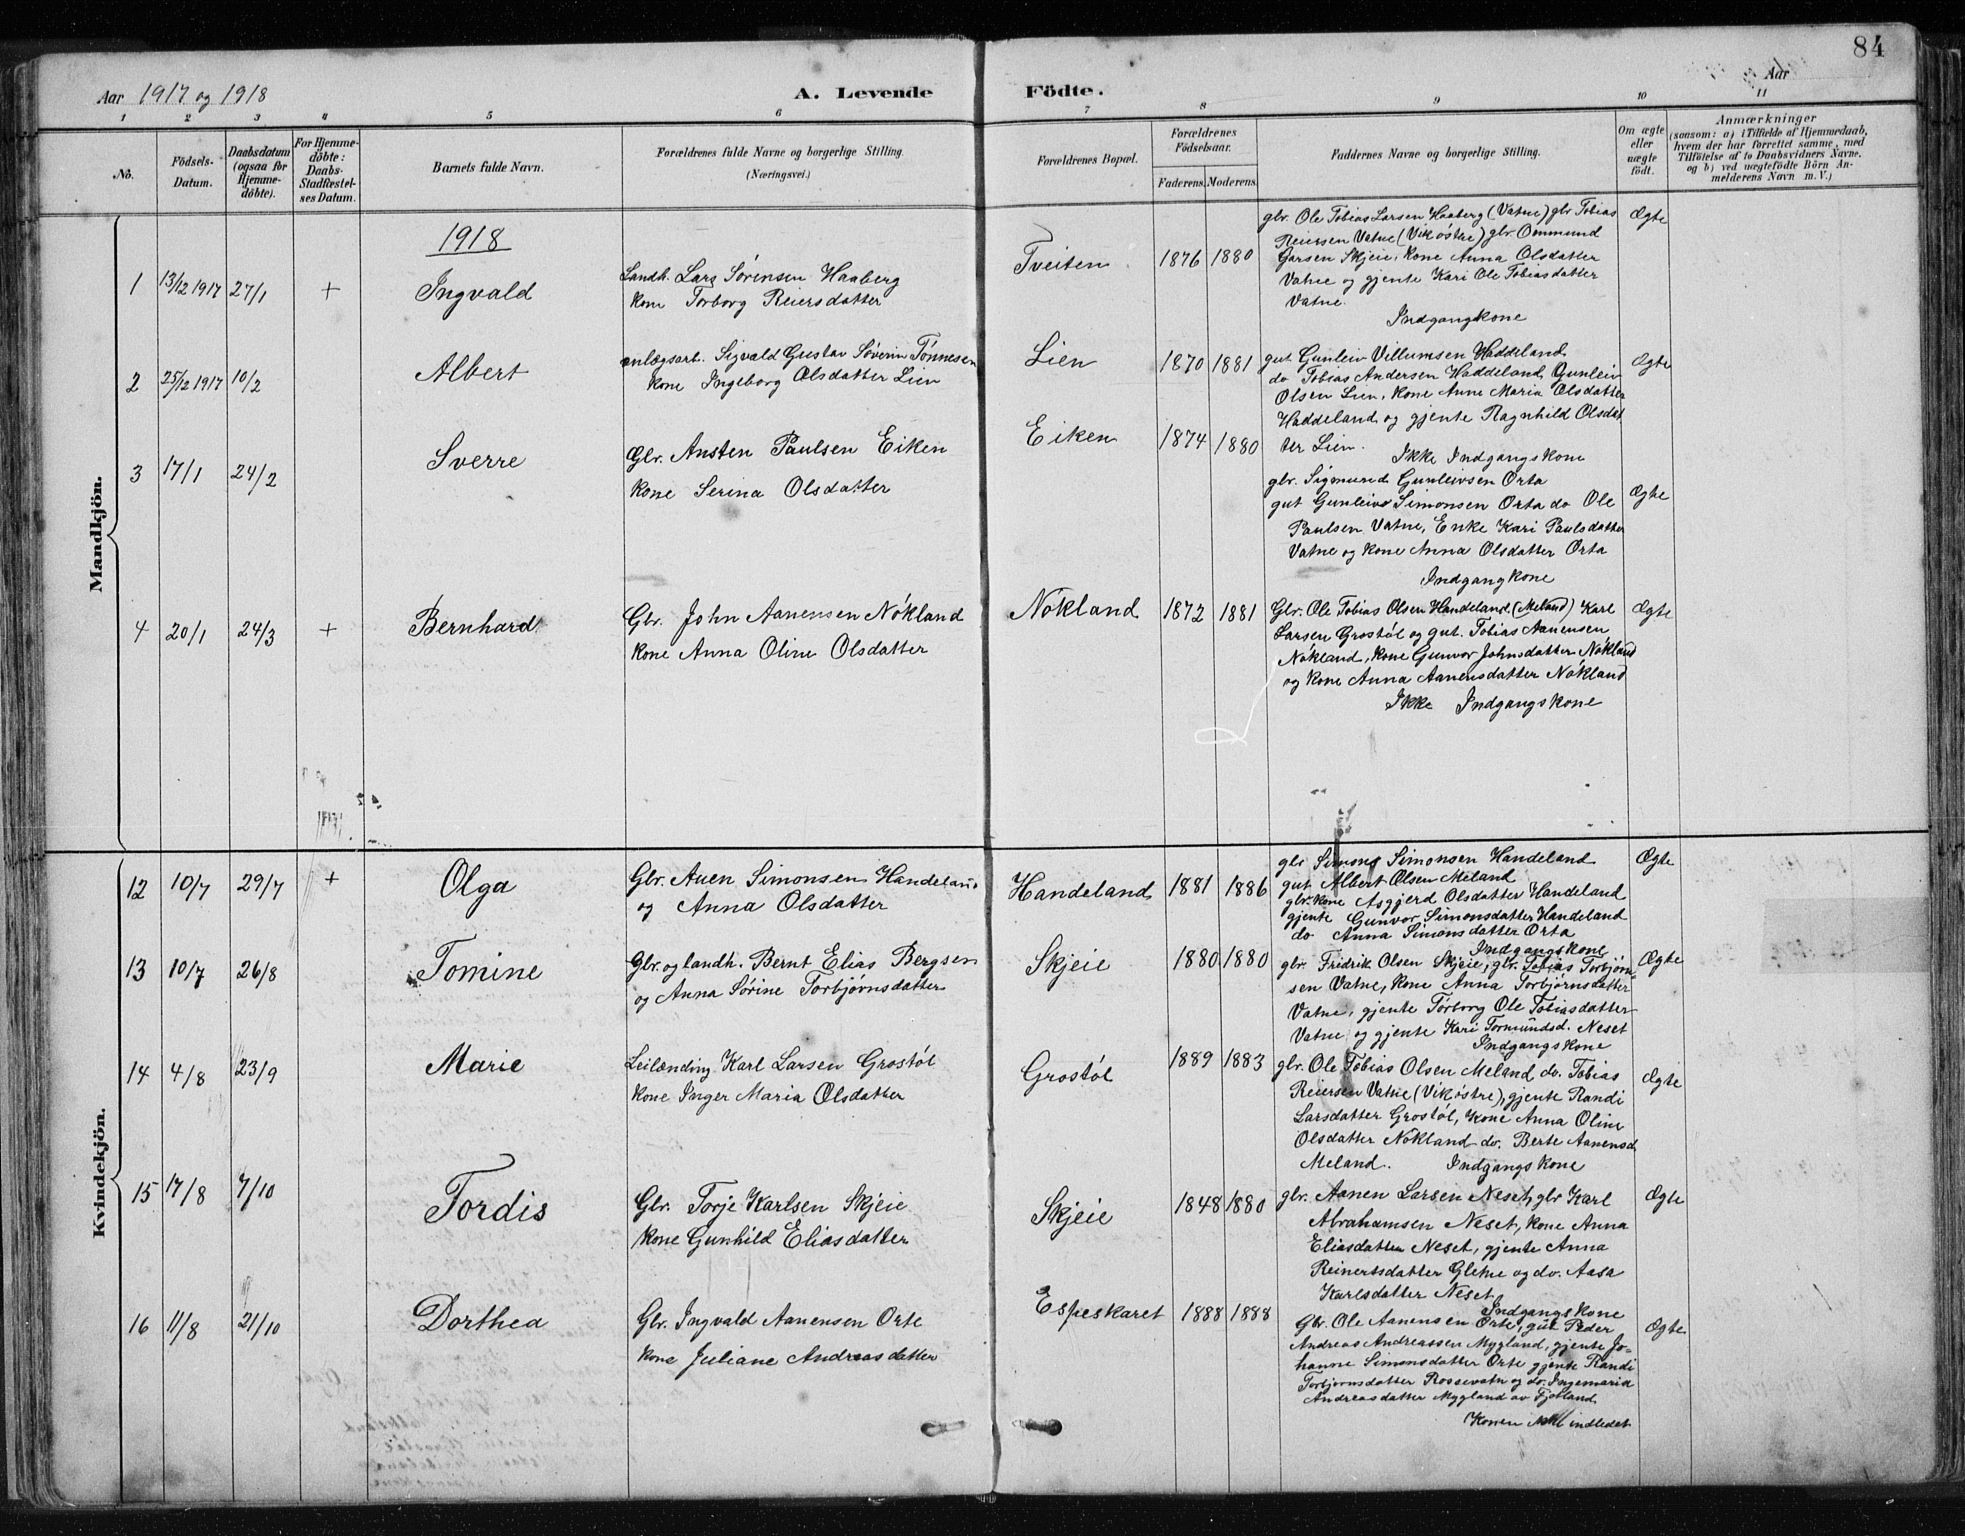 84
Aar 1917 og 1918
A. Levende Födte.
Aar
1 2 3 4 5 6 7 8 9 10 11
No.
Födsels-Datum.
Daabsdatum (ogsaa for Hjemme-döbte).
For Hjemme-döbte: Daabs-Stadfæstel-ses Datum.
Barnets fulde Navn.
Forældrenes fulde Navne og borgerlige Stilling. (Næringsvei.)
Forældrenes Bopæl.
Forældrenes Födselsaar.
Faderens. Moderens.
Faddernes Navne og borgerlige Stilling.
Om ægte eller uægte födt.
Anmærkninger
(saasom: a) i Tilfælde af Hjemmedaab, hvem der har forrettet samme, med Tilföielse af to Daabsvidners Navne, og b) ved uægtefödte Börn An-melderens Navn m. V.)
Mandkjön.
1918
1 13/12 1917 27/1 + Ingvald
Landh. Lars Sørensen Haaberg
kone Torborg Reiersdatter
Tveiten 1876 1880
glr. Ole Tobias Larsen Haaberg (Vatne) glr Tobias
Reiersen Vatne (Vikøstre) glr. Ommund
Garsen Skjeie, kone Anna Olsdatter
Vatne og gjente Kari Ole Tobiasdatter
Vatne.
Indgangkone
Ægte
2 25/12 1917 10/2 Albert
anlægsarb. Sigvald Gustav Søverin Tønnesen
kone Ingeborg Olsdatter Lien
Lien 1870 1881
gut Gunleiv Villumsen Haddeland
do Tobias Andersen Haddeland Gunleiv
Olsen Lien, kone Anne Maria Olsdatter
Haddeland og gjente Ragnhild Olsdat
ter Lien.
Ikke Indgangskone
Ægte
3 17/1 24/2 Sverre
Glr. Ansten Paulsen Eiken
kone Serina Olsdatter
Eiken 1874 1880
glr. Sigmund Gunleivsen Orta
gut Gunleiv Simonsen Orta do Ole
Paulsen Vatne, Enke Kari Paulsdatter
Vatne og kone Anna Olsdatter Orta
Indgangkone
Ægte
4 20/1 24/3 + Bernhard
Glr. John Aanensen Nökland
kone Anna Oline Olsdatter
Nökland 1872 1881
Glr. Ole Tobias Olsen Handeland (Meland) Karl
Larsen Grostöl og gut. Tobias Aanensen
Nökland, kone Gunvor Johnsdatter Nökland
og kone Anna Aanensdatter Nökland
Ikke Indgangskone
Ægte
Kvindekjön.
12 10/7 29/7 + Olga
Glr. Auen Simonsen Handeland
og Anna Olsdatter
Handeland 1881 1886
glr Simon Simonsen Handeland
gut Albert Olsen Meland
glr.kone Asgjerd Olsdatter Handeland
gjente Gunvor Simonsdatter Handeland
do Anna Simonsdatter Orta
Indgangskone
Ægte
13 10/7 26/8 Tomine
Glr. og landh. Bernt Elias Bergsen
og Anna Sørine Torbjørnsdatter
Skjeie 1880 1880
glr. Fridrik Olsen Skjeie, glr. Tobias Torbjørn-
sen Vatne, kone Anna Torbjørnsdatter
Vatne, gjente Tørborg Ole Tobiasdatter
Vatne og gjente Kari Tormundsd. Neset
Indgangskone
Ægte
14 4/8 23/9 Marie
Leilænding Karl Larsen Grostöl
kone Inger Maria Olsdatter
Grostöl 1889 1883
glr. Ole Tobias Olsen Meland do. Tobias
Reiersen Vatne (Vikøstre), gjente Randi
Larsdatter Grostöl, kone Anna Oline
Olsdatter Nökland do. Berte Aanensd
Meland. Indgangskone
Ægte
15 17/8 7/10 Tordis
Glr. Torje Karlsen Skjeie
kone Gunhild Eliasdatter
Skjeie 1848 1880
glr. Aanen Larsen Neset, glr Karl
Abrahamsen Neset, kone Anna
Eliasdatter Neset, gjente Anna
Reinertsdatter Glene og do. Aasa
Karlsdatter Neset
Indgangskone
Ægte
16 11/8 21/10 Dorthea
Glr. Ingvald Aanensen Orte
kone Juliane Andreasdatter
Espeskaret 1888 1888
Glr. Ole Aanensen Orte, gut Peder
Andreas Andreassen Mygland, gjente Jo-
hanne Simonsdatter Orte gjente Randi
Torbjørnsdatter Rossevatn og do. Ingemaria
Andreasdatter Mygland av Fjotland
Konen indledet
Ægte